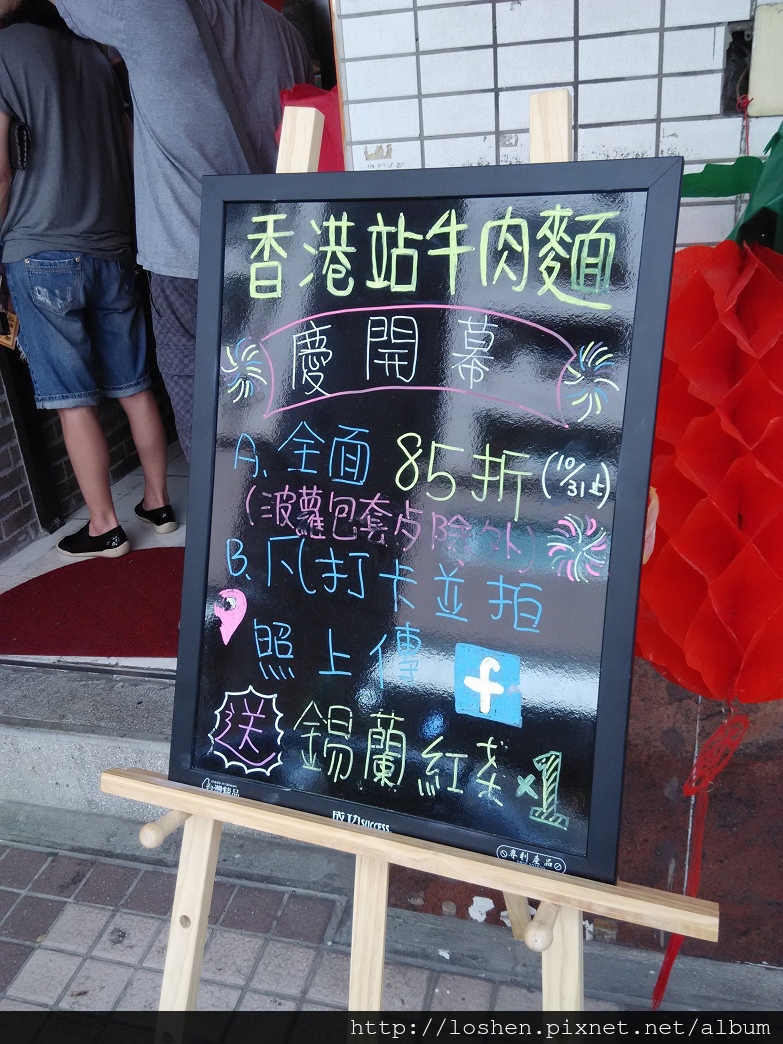 香港站牛肉麵
慶開幕
A. 全面 85折 (10/31止)
(波蘿包套卢除外)
B. 凡打卡並拍
照上傳 f
送 錫蘭紅茶 x1
台灣精品
成功 SUCCESS
專利產品
http://loshen.pixnet.net/album